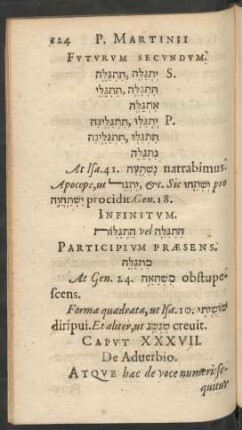 124 P. MARTINII
FVTVRVM SECVNDVM.
יִתְגַּלֶּה, תִּתְגַּלֶּה S.
תִּתְגַּלֶּה, תִּתְגַּלִּי
אֶתְגַּלֶּה
יִתְגַּלּוּ, תִּתְגַּלֶּינָה P.
תִּתְגַּלּוּ, תִּתְגַּלֶּינָה
נִתְגַּלֶּה
At Isa. 41. narrabimus.
Apocope, ut יִתְגַּל, &c. Sic pro
procidit. Gen. 18.
INFINITVM.
הִתְגַּלֵּה vel
PARTICIPIVM PRÆSENS.
מִתְגַּלֶּה
At Gen. 24. obstupe-
scens.
Forma quadrata, ut Isa. 10.
diripui. Et aliter, ut creuit.
CAPVT XXXVII.
De Aduerbio.
ATQVE hac de voce numeri: se-
quitur